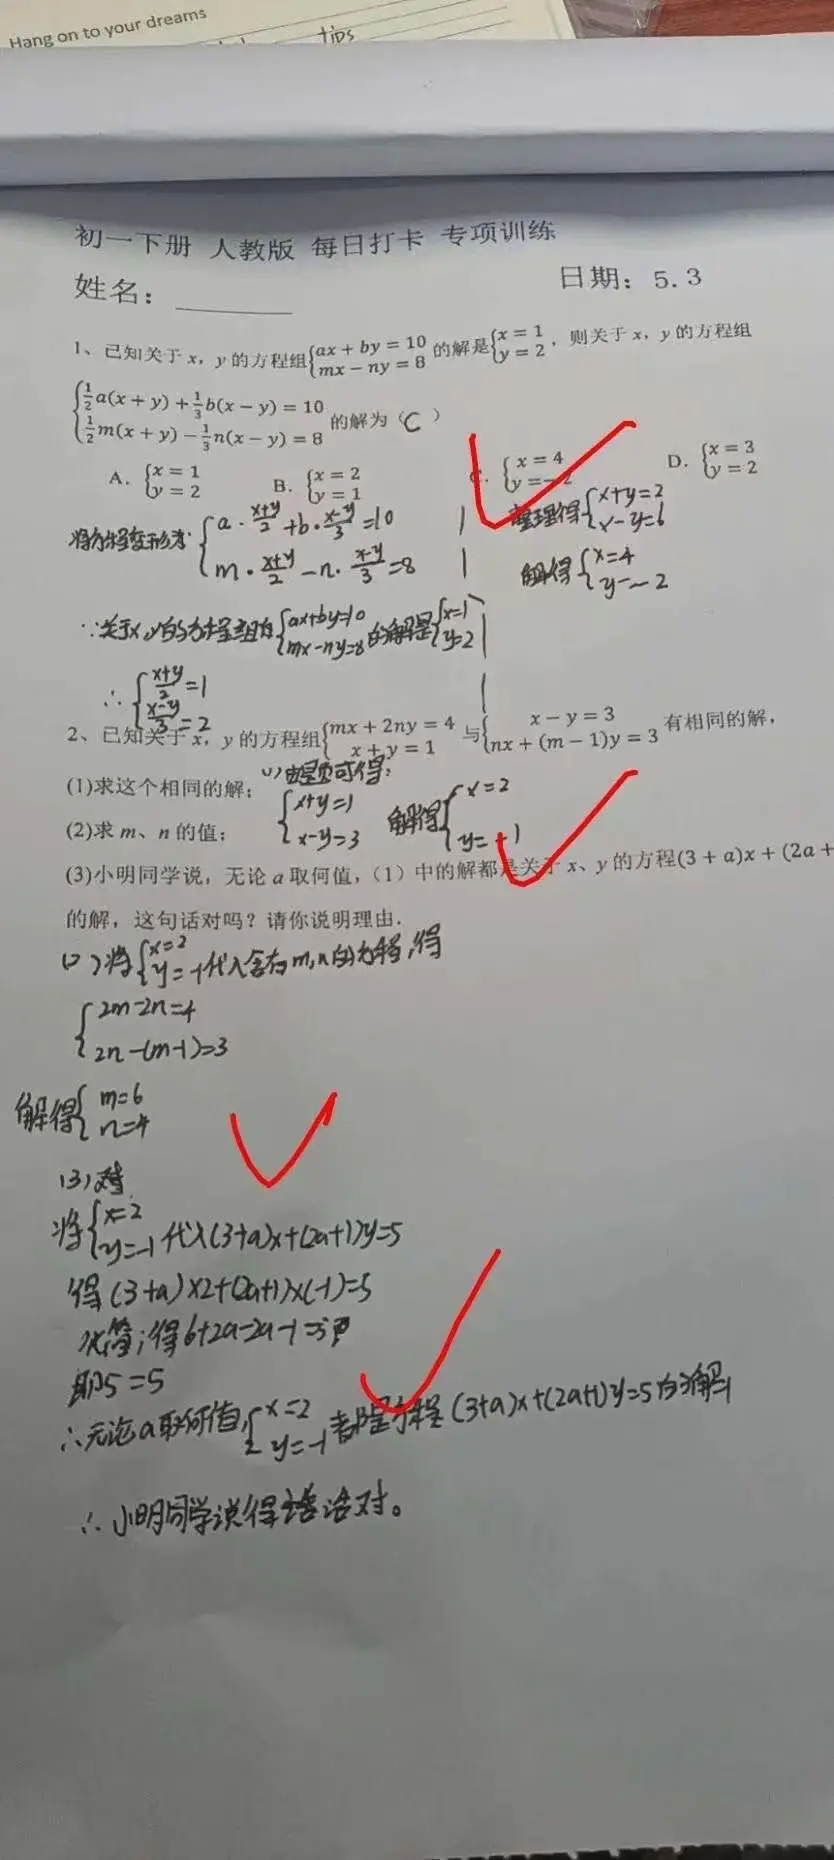 Hang on to your dreams
tips
初一下册 人教版 每日打卡 专项训练
姓名：
日期：5.3
1、已知关于 x，y 的方程组{ax + by = 10 mx − ny = 8 的解是{x = 1 y = 2，则关于 x，y 的方程组
{½a(x + y) + ⅓b(x − y) = 10 ½m(x + y) − ⅓n(x − y) = 8 的解为（C）
A. {x = 1 y = 2 B. {x = 2 y = 1 C. {x = 4 y = −2 D. {x = 3 y = 2
将方程变形为 {a·(x+y)/2 + b·(x−y)/3 = 10 m·(x+y)/2 − n·(x−y)/3 = 8
∵关于x,y的方程组为{ax+by=10 mx−ny=8 的解是{x=1 y=2
∴{(x+y)/2=1 (x−y)/3=2
整理得{x+y=2 x−y=6
解得{x=4 y=−2
2、已知关于 x，y 的方程组{mx + 2ny = 4 x + y = 1 与{x − y = 3 nx + (m − 1)y = 3 有相同的解，
(1)求这个相同的解；
(1)由题可得：
{x+y=1 x−y=3 解得{x=2 y=−1
(2)求 m、n 的值；
(3)小明同学说，无论 a 取何值，（1）中的解都是关于 x、y 的方程(3 + a)x + (2a +
的解，这句话对吗？请你说明理由.
(2)将{x=2 y=−1代入含有m,n的方程,得
{2m−2n=4 2n−(m−1)=3
解得{m=6 n=4
(3)对
将{x=2 y=−1 代入(3+a)x+(2a+1)y=5
得(3+a)×2+(2a+1)×(−1)=5
得6+2a−2a−1=5
即5=5
∴无论a取何值,{x=2 y=−1 都是方程(3+a)x+(2a+1)y=5的解
∴小明同学说得话对。